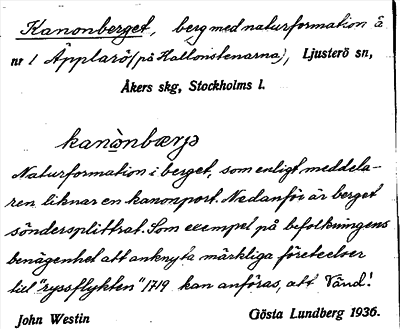 Kanonberget, berg med naturformation å
nr 1 Äpplarö (på Hallonstenarna), Ljusterö sn,
Åkers skg, Stockholms l.
kanònbærjə
Naturformation i berget, som enligt meddela-
ren liknar en kanonport. Nedanför är berget
söndersplittrat. Som exempel på befolkningens
benägenhet att anknyta märkliga företeelser
till "ryssflykten" 1719 kan anföras, att Vänd!
John Westin Gösta Lundberg 1936.